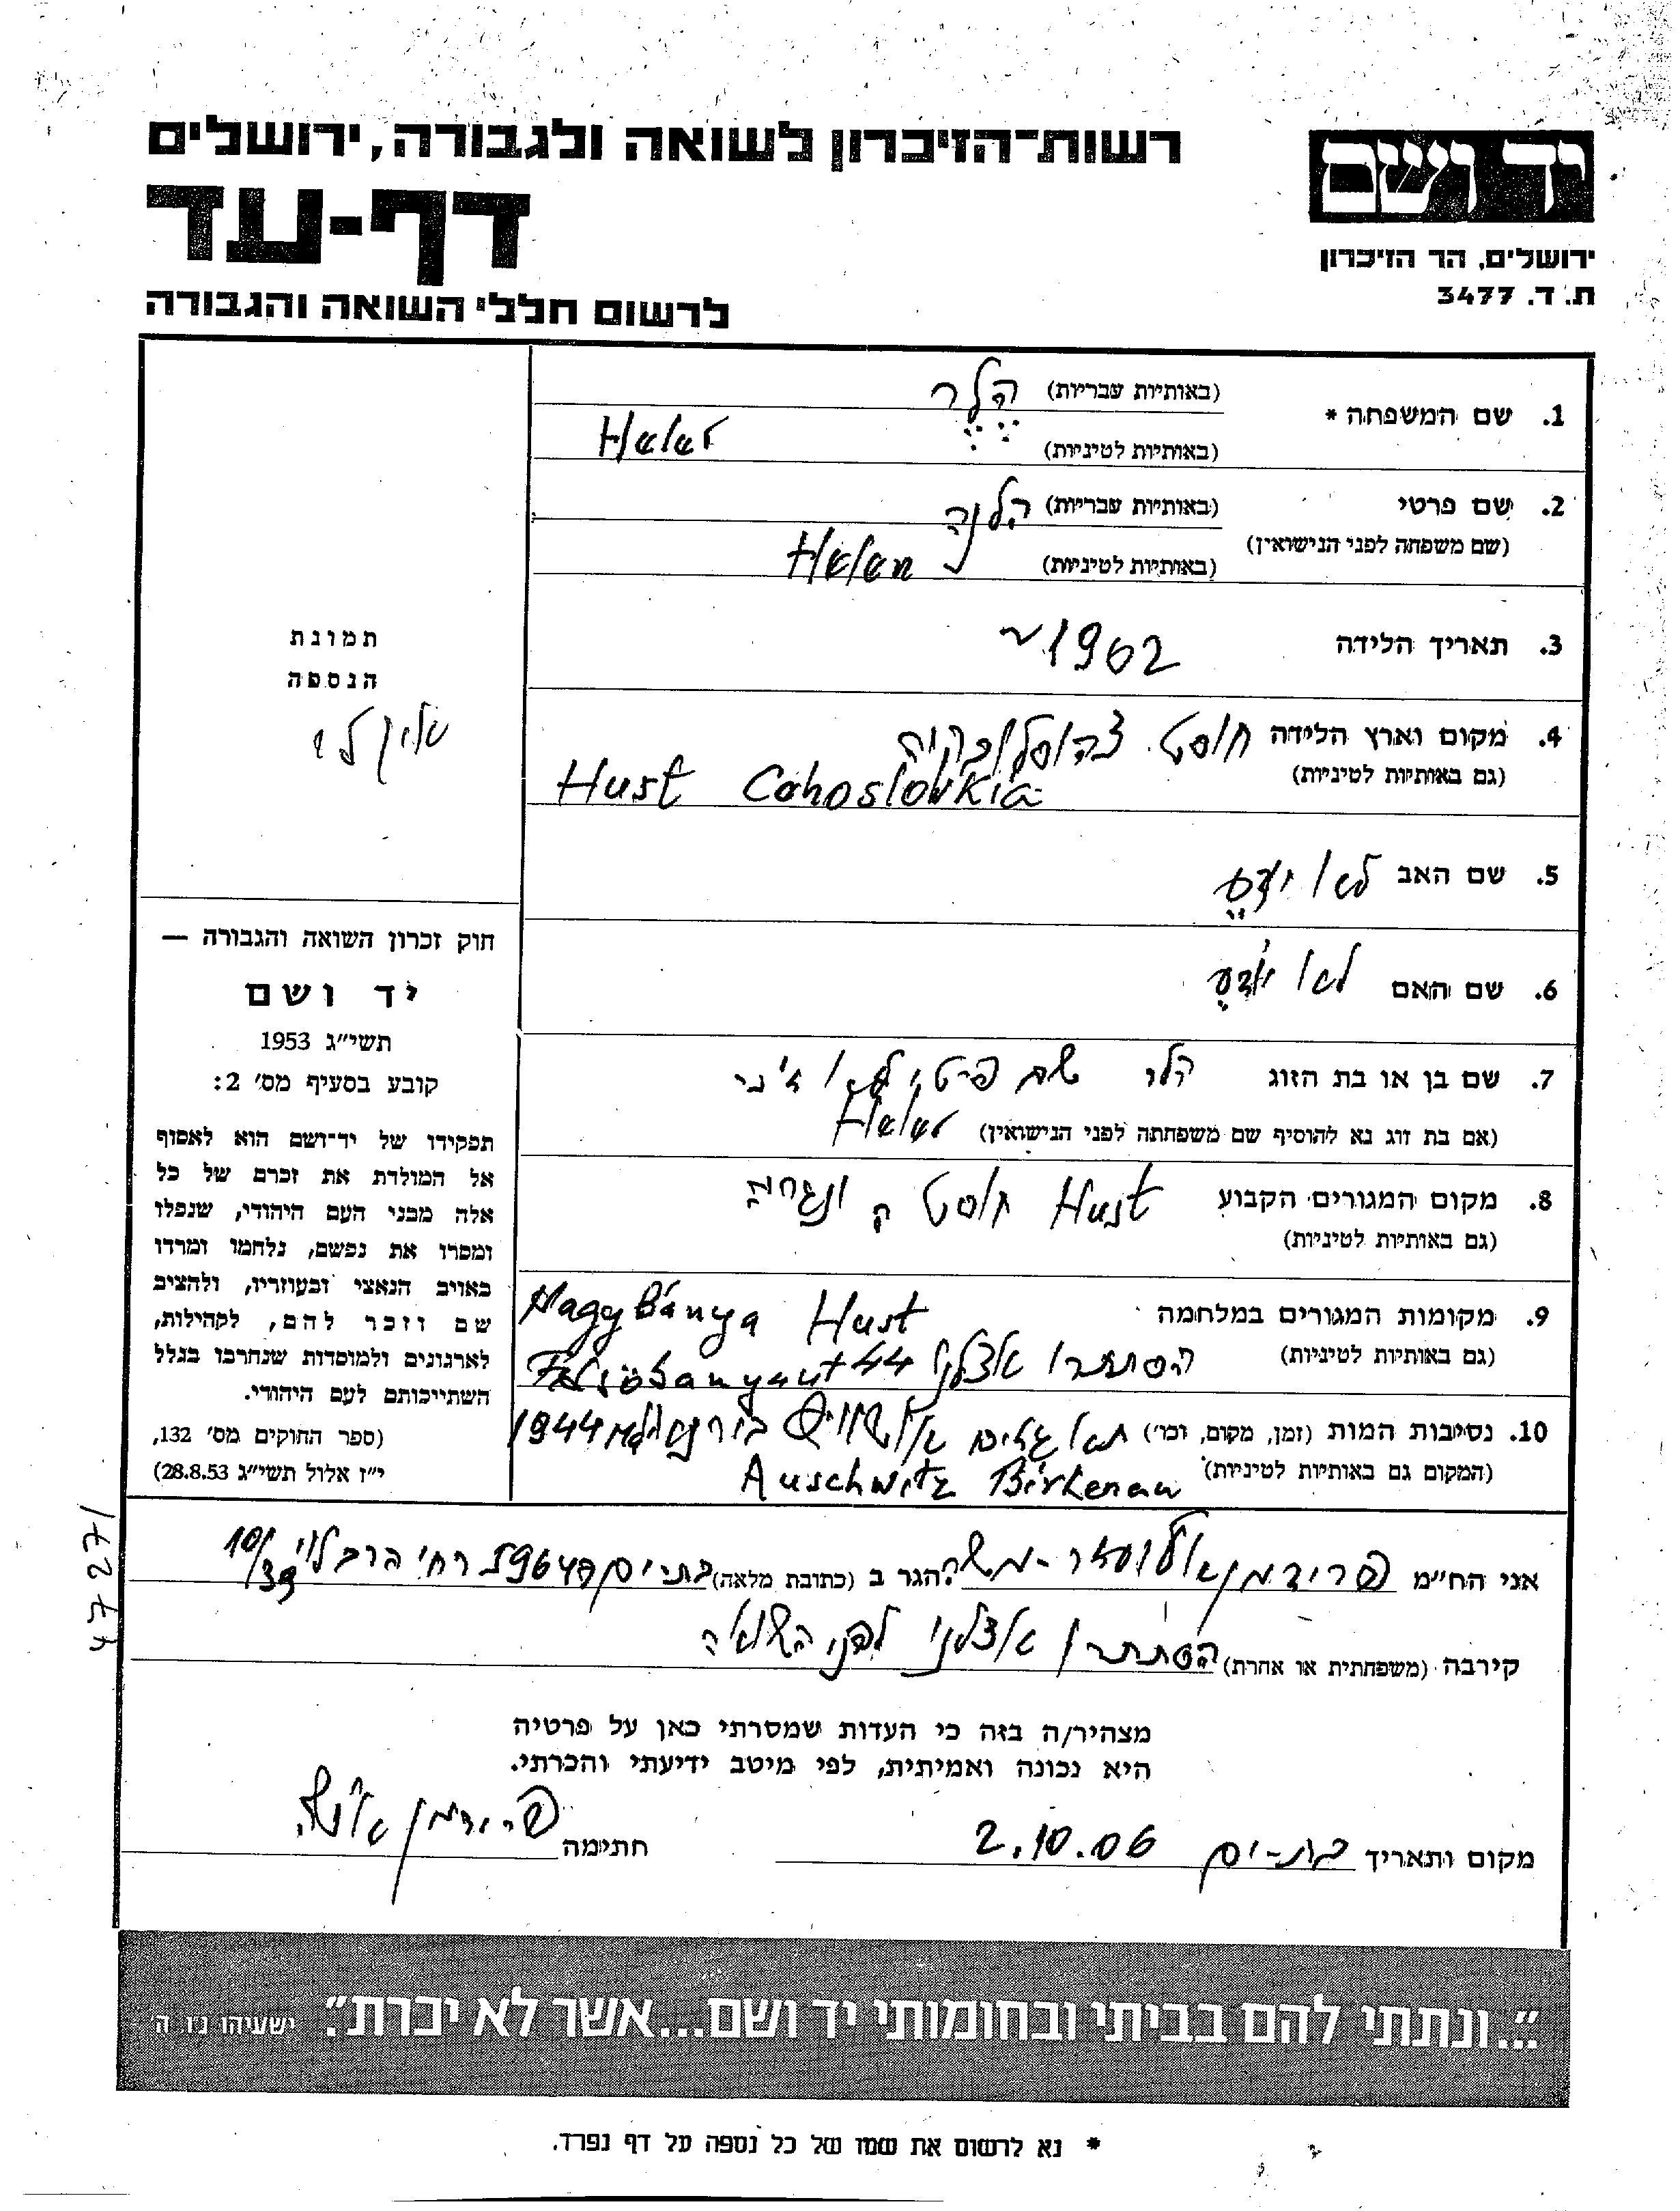 רשות־הזיכרון לשואה ולגבורה, ירושלים
יד ושם
דף-עד
ירושלים, הר הזיכרון
ת. ד. 3477
לרשום חללי השואה והגבורה
1. שם המשפחה * (באותיות עבריות) הלר
(באותיות לטיניות) Heler
2. שם פרטי (באותיות עבריות) הלנה
(שם משפחה לפני הנישואין) (באותיות לטיניות) Helen
3. תאריך הלידה ~1902
4. מקום וארץ הלידה חוסט צכוסלובקיה
(גם באותיות לטיניות) Hust Cohoslovkia
5. שם האב לא יודע
6. שם האם לא יודע
7. שם בן או בת הזוג הלר שם פרטי לא
(אם בת זוג נא להוסיף שם משפחתה לפני הנישואין) Heler
8. מקום המגורים הקבוע Hust חוסט
(גם באותיות לטיניות)
9. מקומות המגורים במלחמה Nagybánya Hust
(גם באותיות לטיניות) הסתתרו אצלנו Felsöbanyaut 44
10. נסיבות המות (זמן, מקום, וכו') תא גזים אושוויץ בירקנאו 1944
(המקום גם באותיות לטיניות) Auschwitz Birkenau
תמונת
הנספה
אין לי
חוק זכרון השואה והגבורה —
יד ושם
תשי״ג 1953
קובע בסעיף מס׳ 2:
תפקידו של יד־ושם הוא לאסוף
אל המולדת את זכרם של כל
אלה מבני העם היהודי, שנפלו
ומסרו את נפשם, נלחמו ומרדו
באויב הנאצי ובעוזריו, ולהציב
שם וזכר להם, לקהילות,
לארגונים ולמוסדות שנחרבו בגלל
השתייכותם לעם היהודי.
(ספר החוקים מס׳ 132,
י״ז אלול תשי״ג 28.8.53)
אני הח״מ פרידמן הגר ב (כתובת מלאה) בת-ים 59647 רח׳ הרב לוי 10/39
קירבה (משפחתית או אחרת) הסתתרו אצלנו לפני השואה
מצהיר/ה בזה כי העדות שמסרתי כאן על פרטיה
היא נכונה ואמיתית, לפי מיטב ידיעתי והכרתי.
מקום ותאריך בת-ים 2.10.06 חתימה פרידמן
״...ונתתי להם בביתי ובחומותי יד ושם...אשר לא יכרת״. ישעיהו נ״ו ה׳
* נא לרשום את שמו של כל נספה על דף נפרד.